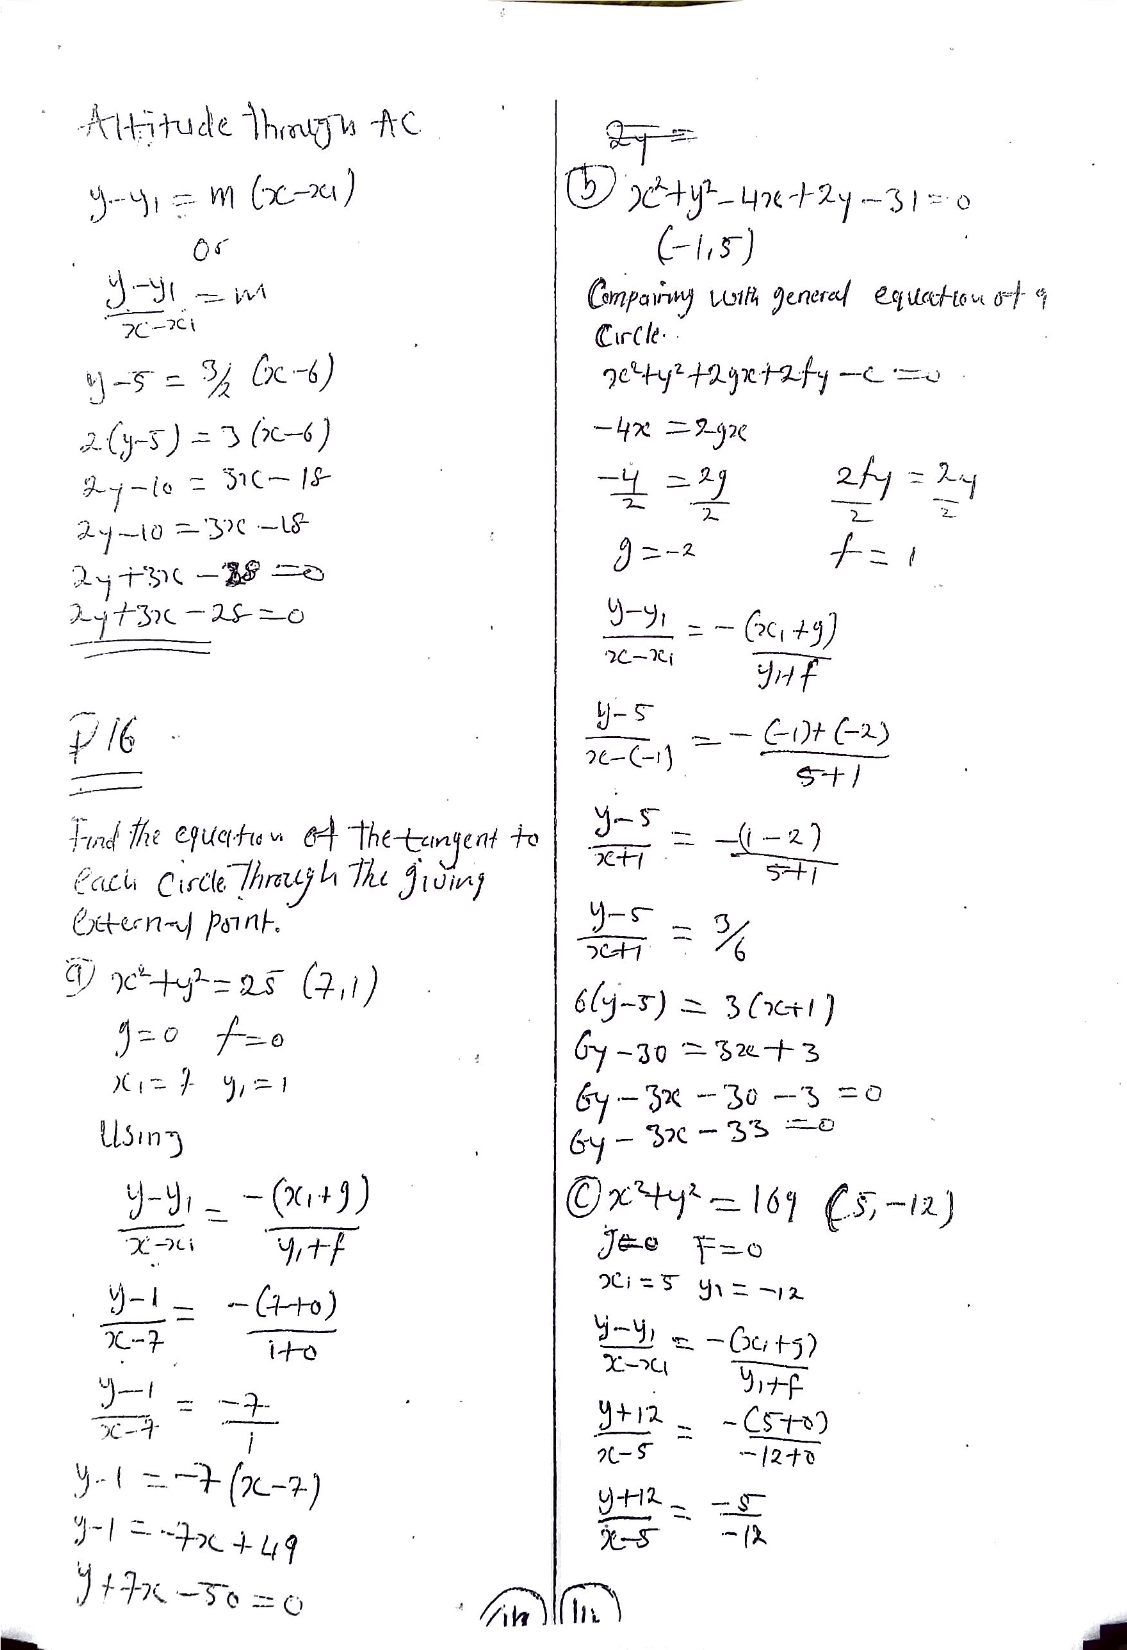 Altitude Through AC
y-y₁ = m (x-x₁)
Or
y-y₁/x-x₁ = m
y-5 = 3/2 (x-6)
2(y-5) = 3(x-6)
2y-10 = 3x-18
2y-10 = 3x-18
2y+3x-28=0
2y+3x-28=0
P16
Find the equation of the tangent to
each Circle Through the giving
External point.
a) x²+y²=25 (7,1)
g=0 f=0
x₁=7 y₁=1
Using
y-y₁/x-x₁ = -(x₁+g)/y₁+f
y-1/x-7 = -(7+0)/1+0
y-1/x-7 = -7/1
y-1 = -7(x-7)
y-1 = -7x+49
y+7x-50=0
2y=
(b) x²+y²-4x+2y-31=0
(-1,5)
Comparing with general equation of a
Circle.
x²+y²+2gx+2fy-c=0
-4x = 2gx
-4/2 = 2g/2 2fy/2 = 2y/2
g=-2 f=1
y-y₁/x-x₁ = -(x₁+g)/y₁+f
y-5/x-(-1) = -(-1)+(-2)/5+1
y-5/x+1 = -(1-2)/5+1
y-5/x+1 = 3/6
6(y-5) = 3(x+1)
6y-30 = 3x+3
6y-3x-30-3=0
6y-3x-33=0
(c) x²+y²=169 (5,-12)
g=0 F=0
x₁=5 y₁=-12
y-y₁/x-x₁ = -(x₁+g)/y₁+f
y+12/x-5 = -(5+0)/-12+0
y+12/x-5 = -5/-12